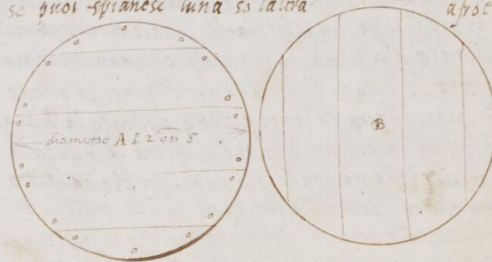 se quoi spianese luna so laltra
afrot
diametro A f 2 on 8
B